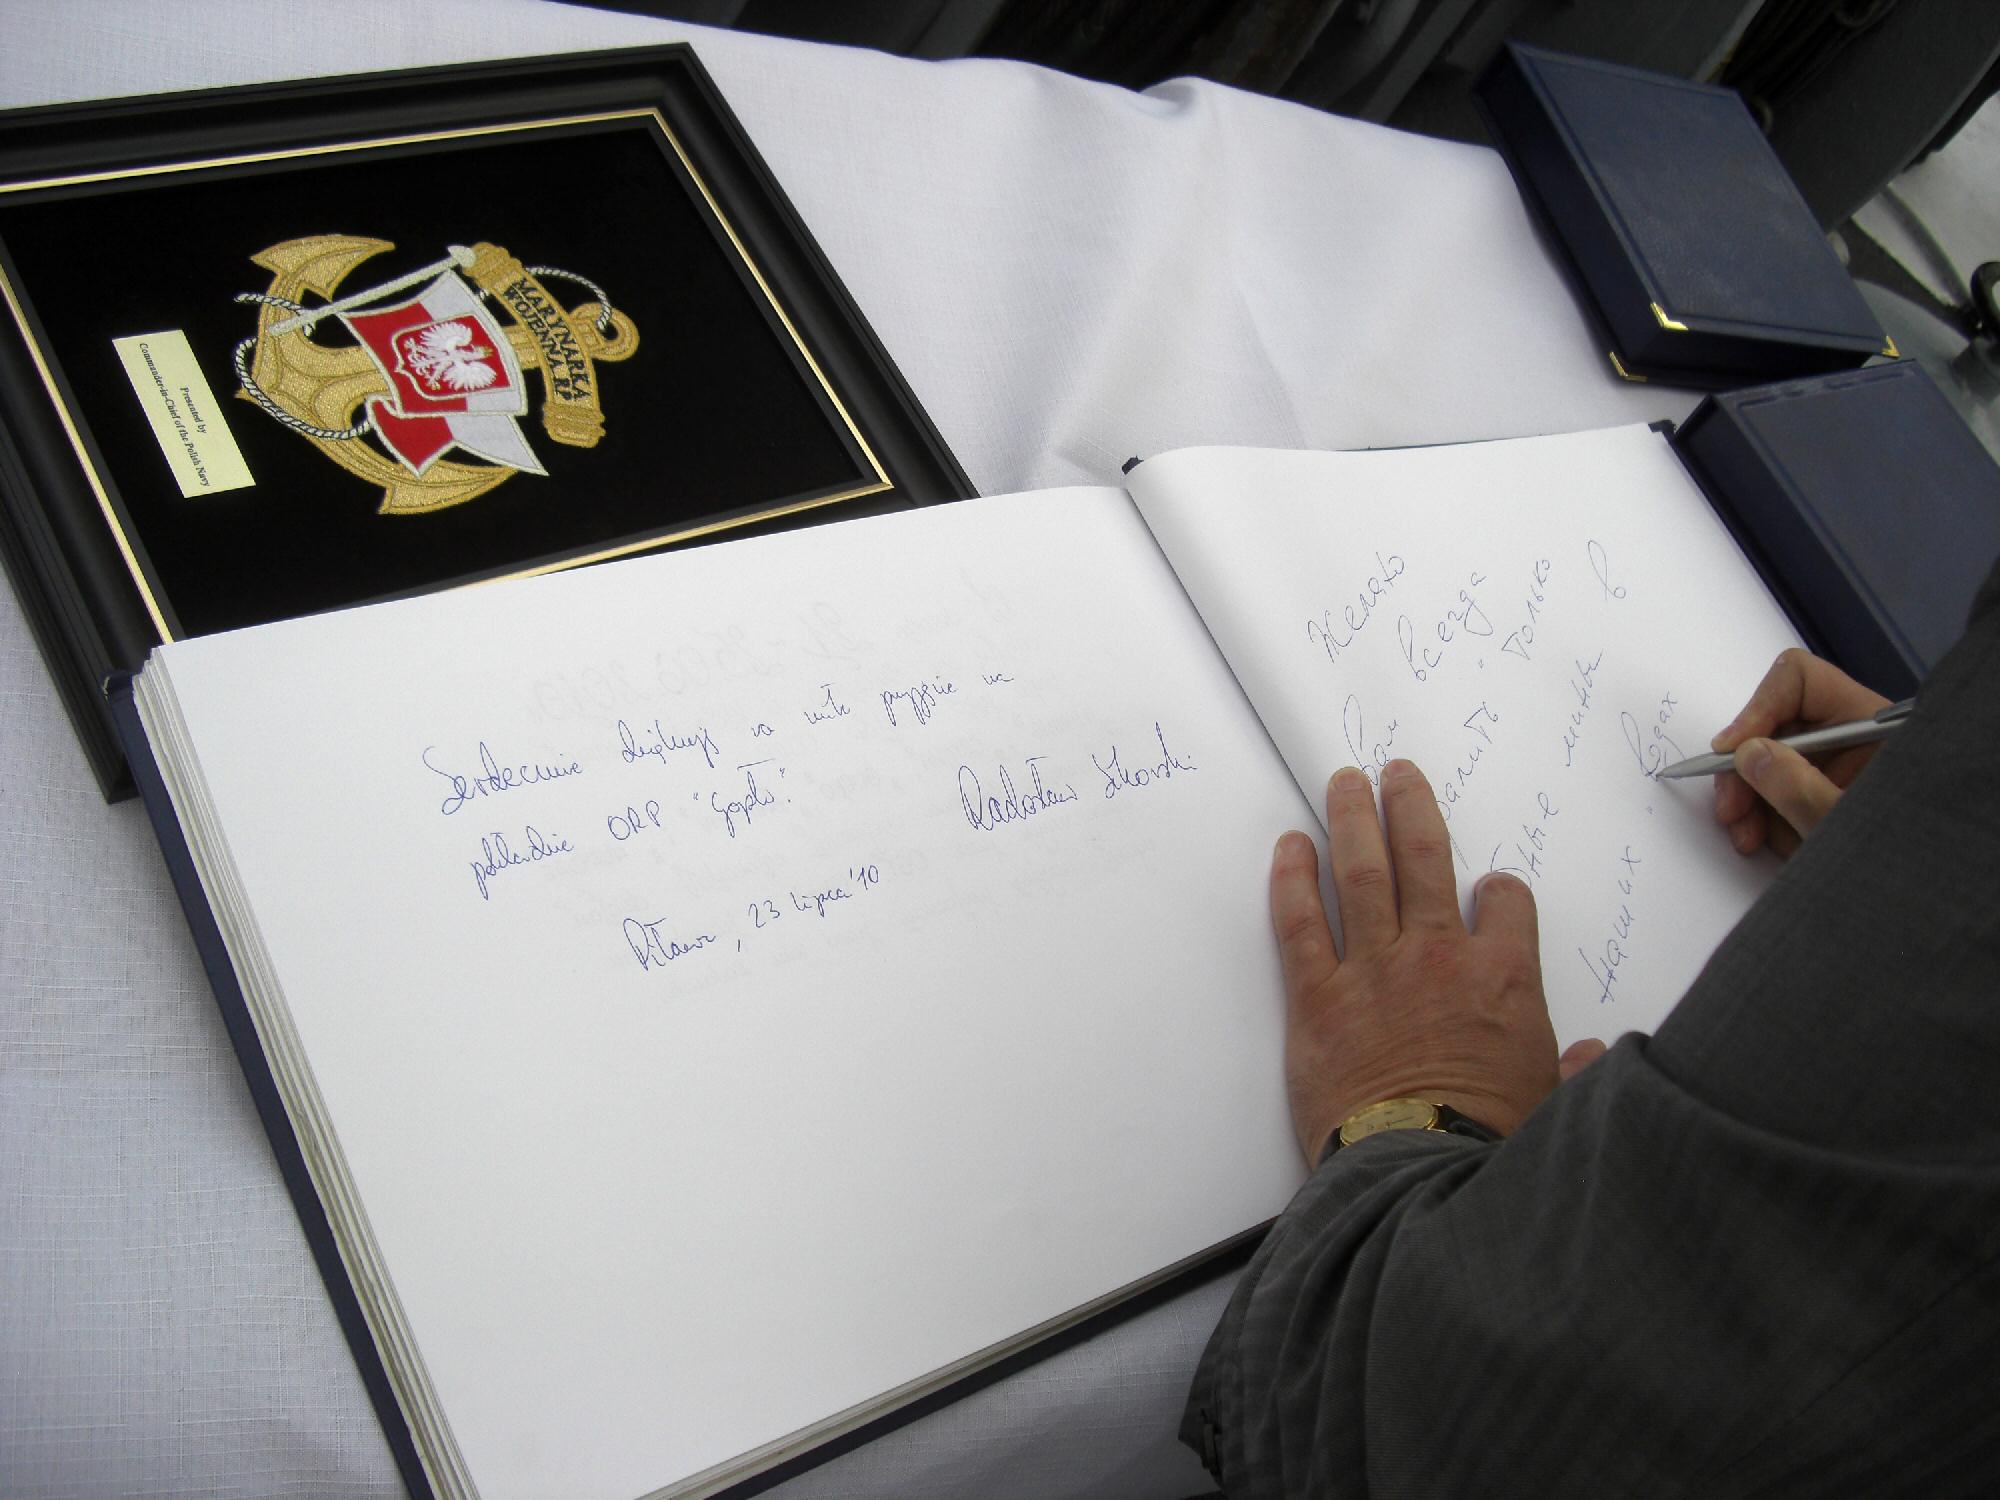 MARYNARKA
WOJENNA RP
Presented by
Commander-in-Chief of the Polish Navy
Serdecznie dziękuję za miłe przyjęcie na
pokładzie ORP "Gopło".
Radosław Sikorski
Piława, 23 lipca '10
Желаю
Вам всегда
"только
минные в
наших водах